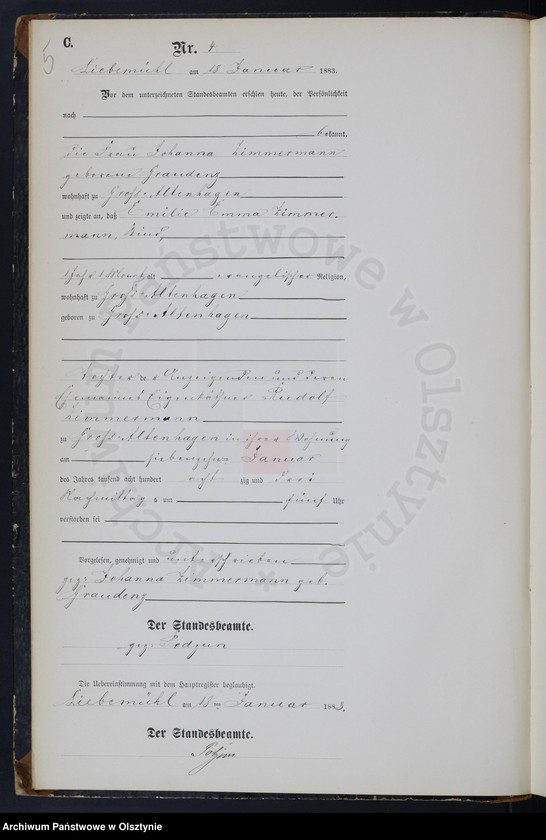 5
C.
Nr. 4
Liebemühl am 18 Januar 1883.
Vor dem unterzeichneten Standesbeamten erschien heute, der Persönlichkeit
nach
bekannt,
die Frau Johanna Zimmermann
geborene Graudenz
wohnhaft zu Groß-Altenhagen
und zeigte an, daß Emilie Emma Zimmer-
mann, Kind,
1 Jahr 1 Monat alt evangelischer Religion,
wohnhaft zu Groß-Altenhagen
geboren zu Groß-Altenhagen
Tochter der Anzeigenden und deren
Ehemannes Eigenkäthner Rudolf
Zimmermann
zu Groß Altenhagen in ihrer Wohnung
am siebenzehn Januar
des Jahres tausend acht hundert acht zig und drei
Nachmittag s um fünf Uhr
verstorben sei
Vorgelesen, genehmigt und unterschrieben
gez. Johanna Zimmermann geb.
Graudenz
Der Standesbeamte.
gez.
Die Uebereinstimmung mit dem Hauptregister beglaubigt.
Liebemühl am 18 ten Januar 1883.
Der Standesbeamte.
Archiwum Państwowe w Olsztynie
Archiwum Państwowe w Olsztynie *